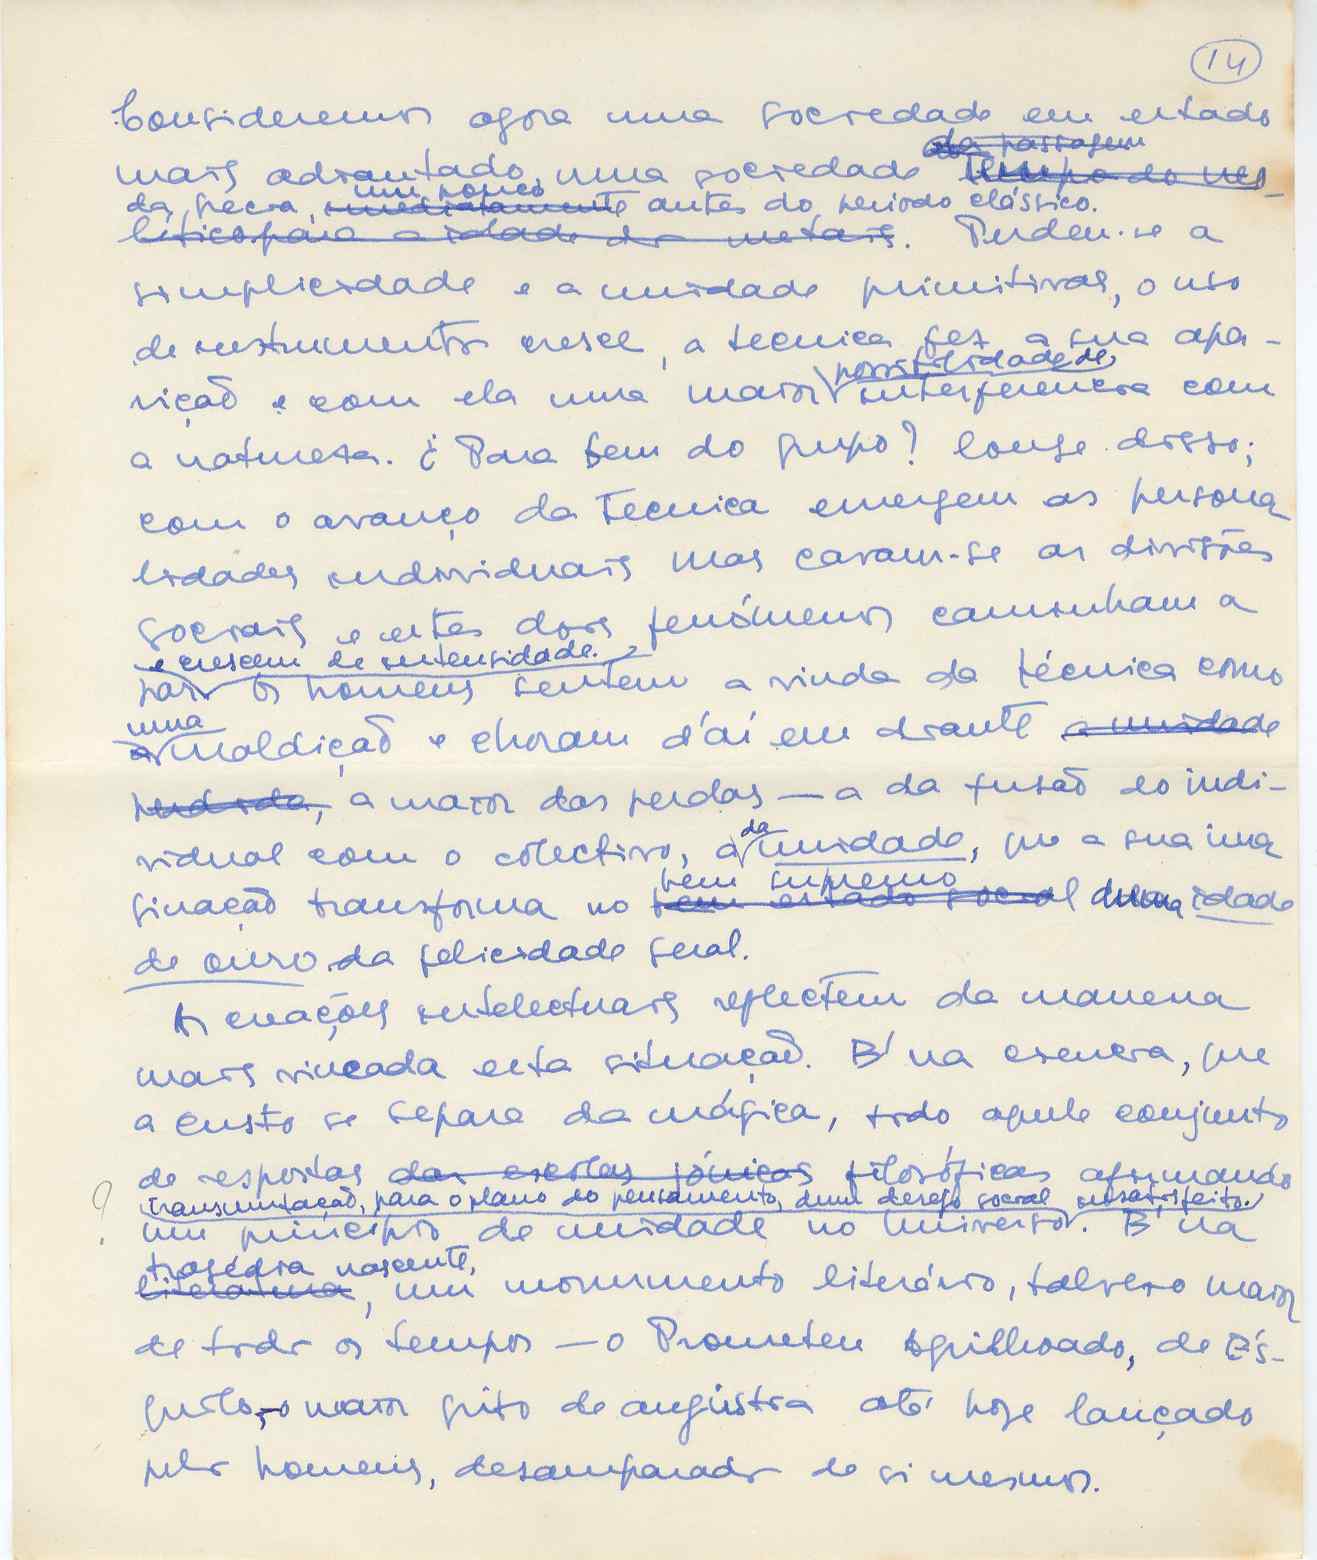 14
Consideremos agora uma sociedade em estado
da passagem
mais adiantado, uma sociedade tempo do neo-
um pouco
da Grecia, imediatamente antes do periodo clássico.
litico para a idade dos metais. Perdeu-se a
simplicidade e a unidade primitivas, o uso
de instrumentos cresce, a tecnica fez a sua apa-
possibilidade de
rição e com ela uma maior interferencia com
a natureza. ¿ Para bem do grupo? Longe disso;
com o avanço da tecnica emergem as persona
lidades individuais mas cavam-se as divisões
sociais e estes dois fenómenos caminham a
e crescem de intensidade.
par. Os homens sentem a vinda da técnica como
uma
a maldição e choram d'aí em diante a unidade
perdida, a maior das perdas — a da fusão do indi-
da
vidual com o colectivo, a unidade, que a sua ima
bem supremo
ginação transforma no bem estado social duma idade
de ouro da felicidade geral.
As creações intelectuais reflectem da maneira
mais vincada esta situação. É na ciencia, que
a custo se separa da mágica, todo aquele conjunto
de respostas das escolas jónicas filosóficas afirmando
transmutação, para o plano do pensamento, dum desejo social insatisfeito.
um principio de unidade no Universo. É na
tragédia nascente,
literatura, um monumento literário, talvez o maior
de todos os tempos — o Prometeu agrilhoado, de És-
quilo, o maior grito de angústia até hoje lançado
pelos homens, desamparados de si mesmos.
?